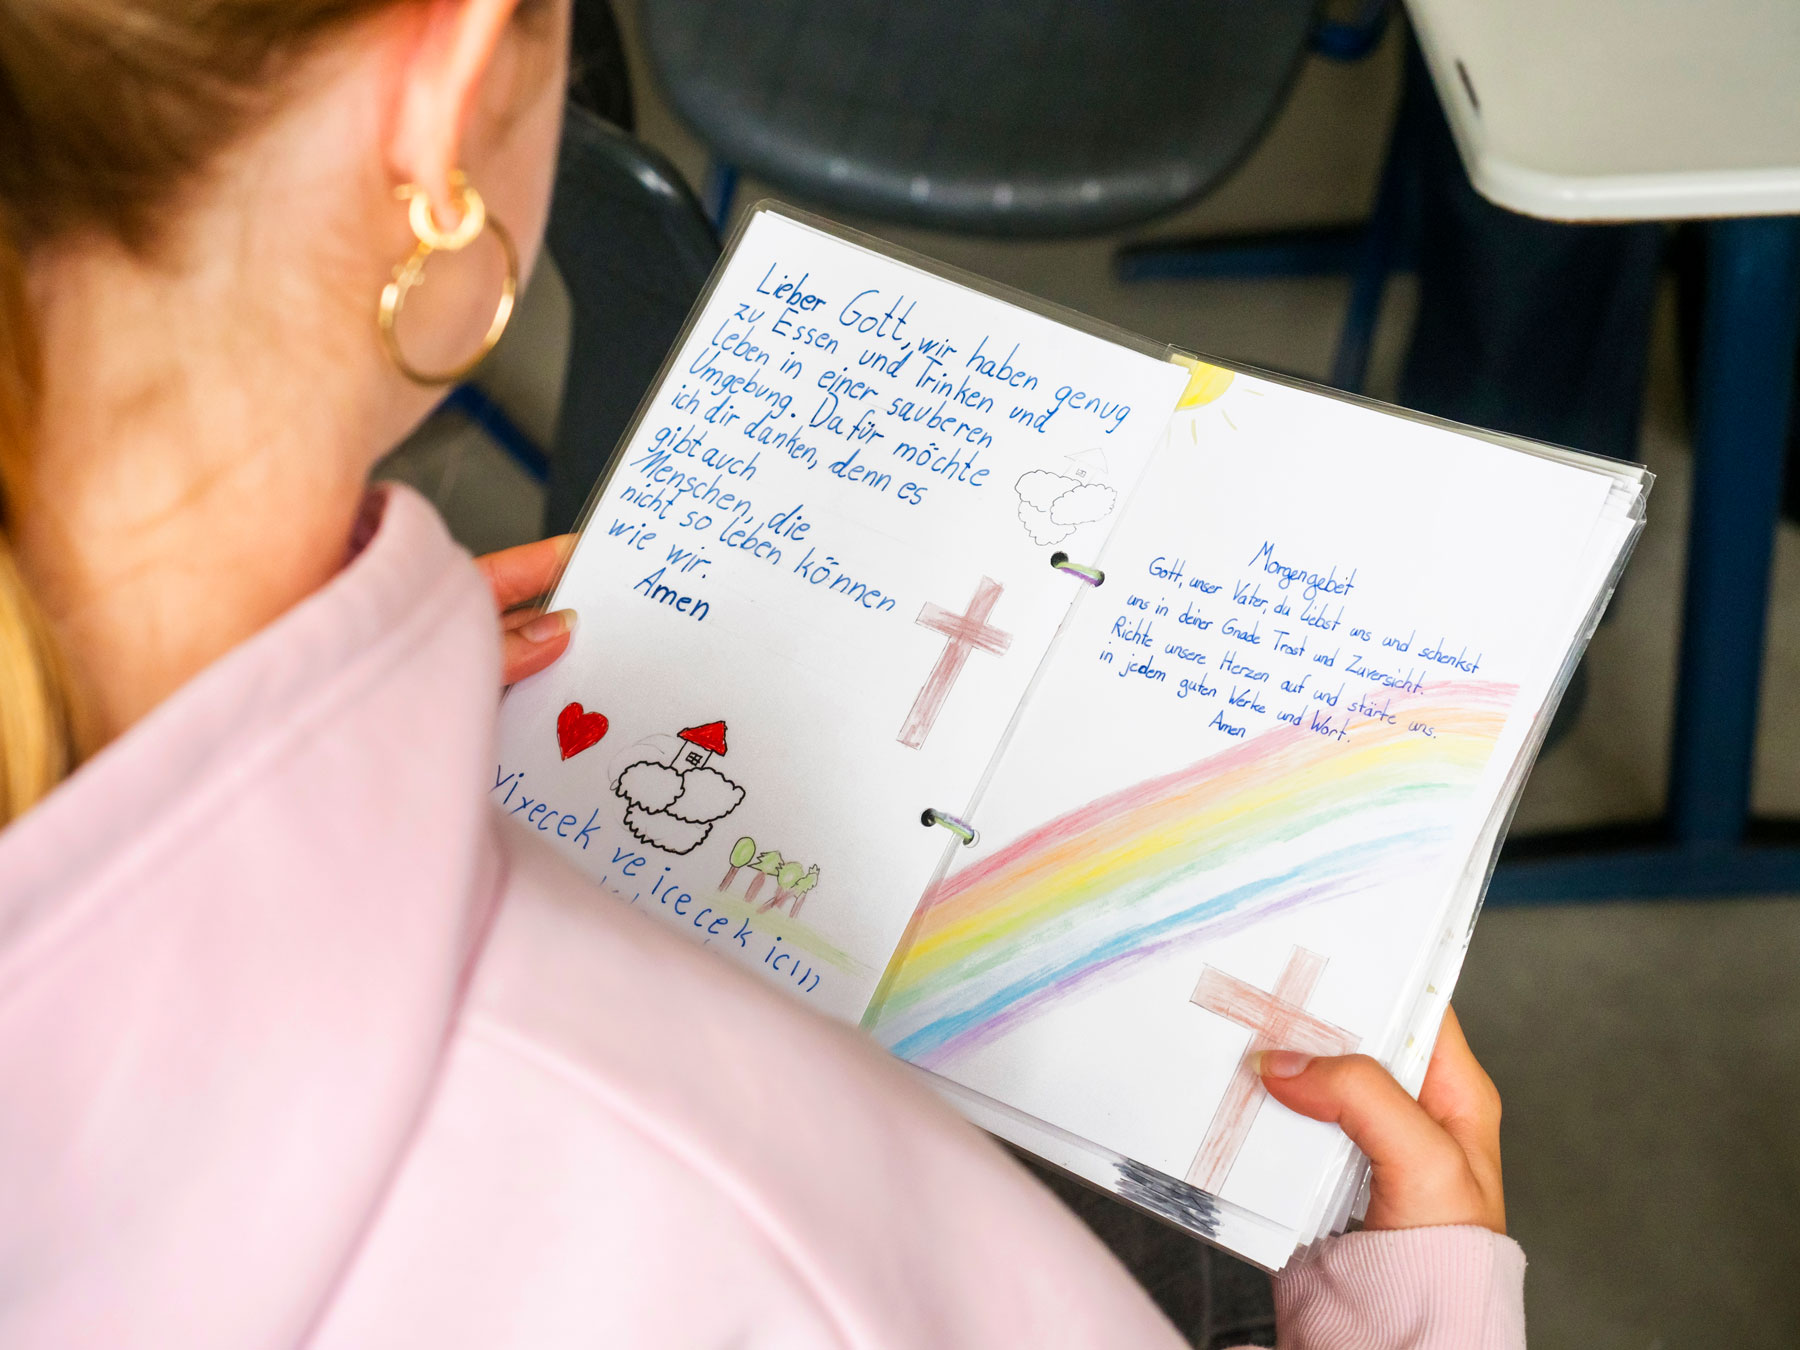 Lieber Gott, wir haben genug
zu Essen und Trinken und
leben in einer sauberen
Umgebung. Dafür möchte
ich dir danken, denn es
gibt auch
Menschen, die
nicht so leben können
wie wir.
Amen
yiyecek ve icecek icin
Morgengebet
Gott, unser Vater, du liebst uns und schenkst
uns in deiner Gnade Trost und Zuversicht.
Richte unsere Herzen auf und stärke uns.
in jedem guten Werke und Wort.
Amen